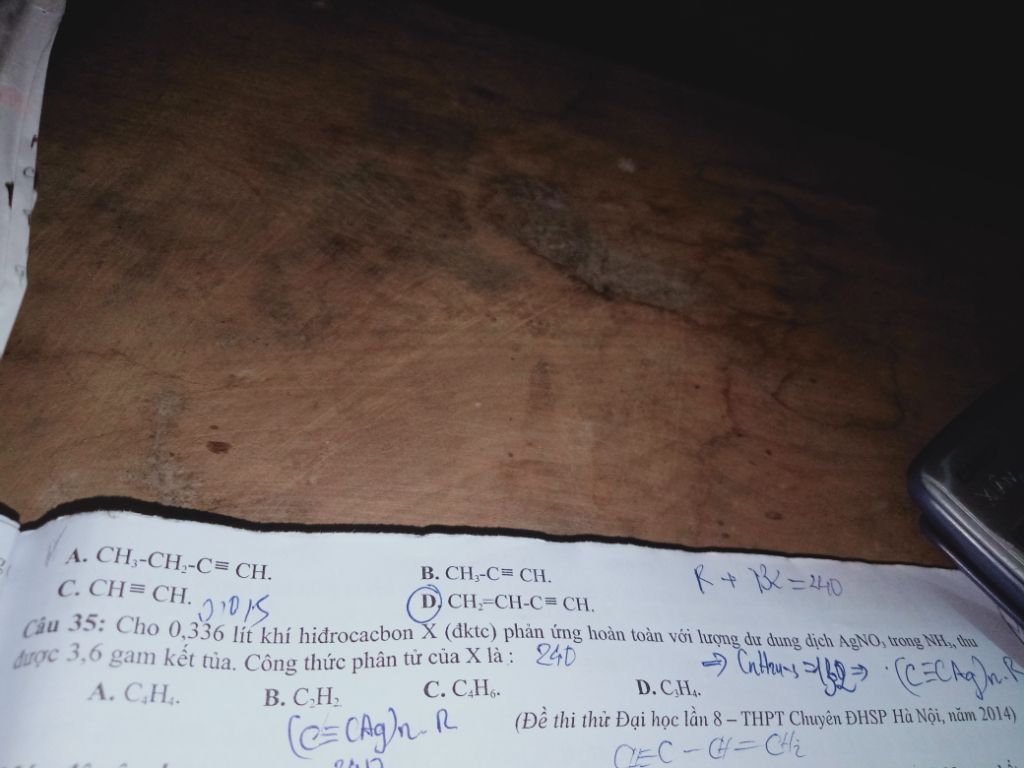 A. CH₃-CH₂-C≡ CH.
B. CH₃-C≡ CH.
R + 132 = 240
C. CH≡ CH.
D. CH₂=CH-C≡ CH.
0,015
Câu 35: Cho 0,336 lít khí hiđrocacbon X (đktc) phản ứng hoàn toàn với lượng dư dung dịch AgNO₃ trong NH₃, thu
được 3,6 gam kết tủa. Công thức phân tử của X là : 240
(C≡CAg)n.R
A. C₄H₄.
B. C₂H₂
C. C₄H₆.
D. C₃H₄.
(C≡CAg)n.R
(Đề thi thử Đại học lần 8 – THPT Chuyên ĐHSP Hà Nội, năm 2014)
C≡C - CH = CH₂